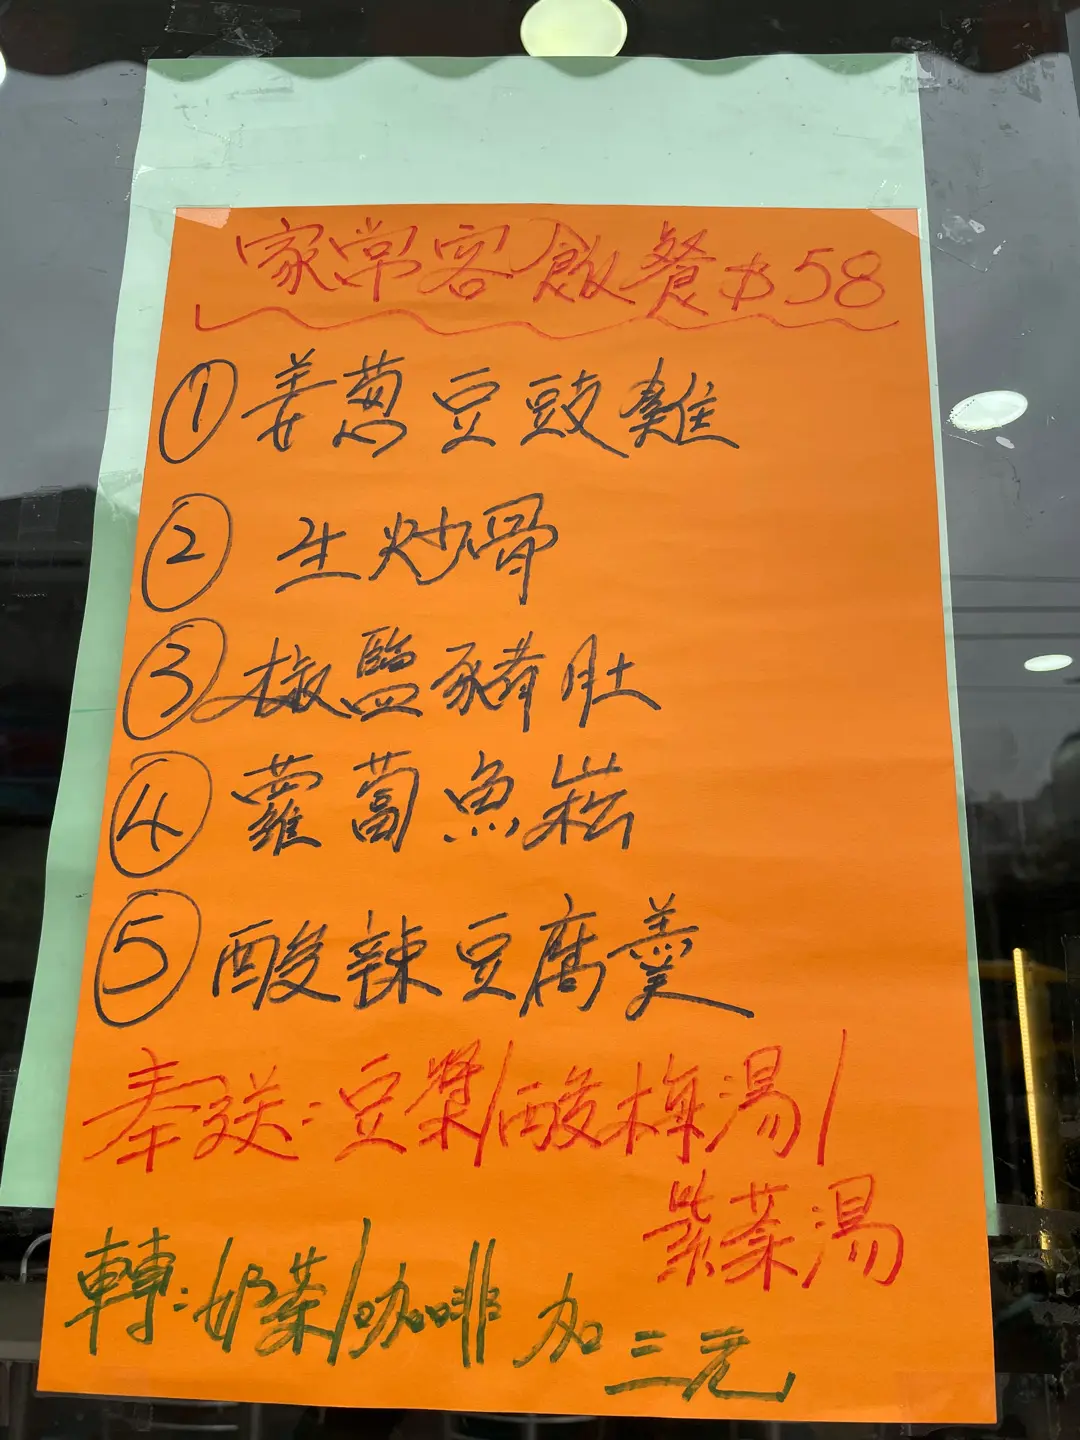 家常客飯餐$58
① 姜葱豆豉雞
② 生炒骨
③ 椒鹽豬肚
④ 蘿蔔魚崧
⑤ 酸辣豆腐羹
奉送:豆漿/酸梅湯/
紫菜湯
轉:奶茶/咖啡 加三元